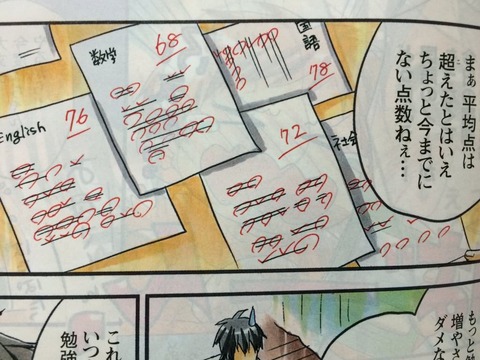 まぁ平均点は
超えたとはいえ
ちょっと今までに
ない点数ねぇ…
国語
78
数学
68
社会
72
English
76
もっと
増やさ
ダメな
これ
いつ
勉強